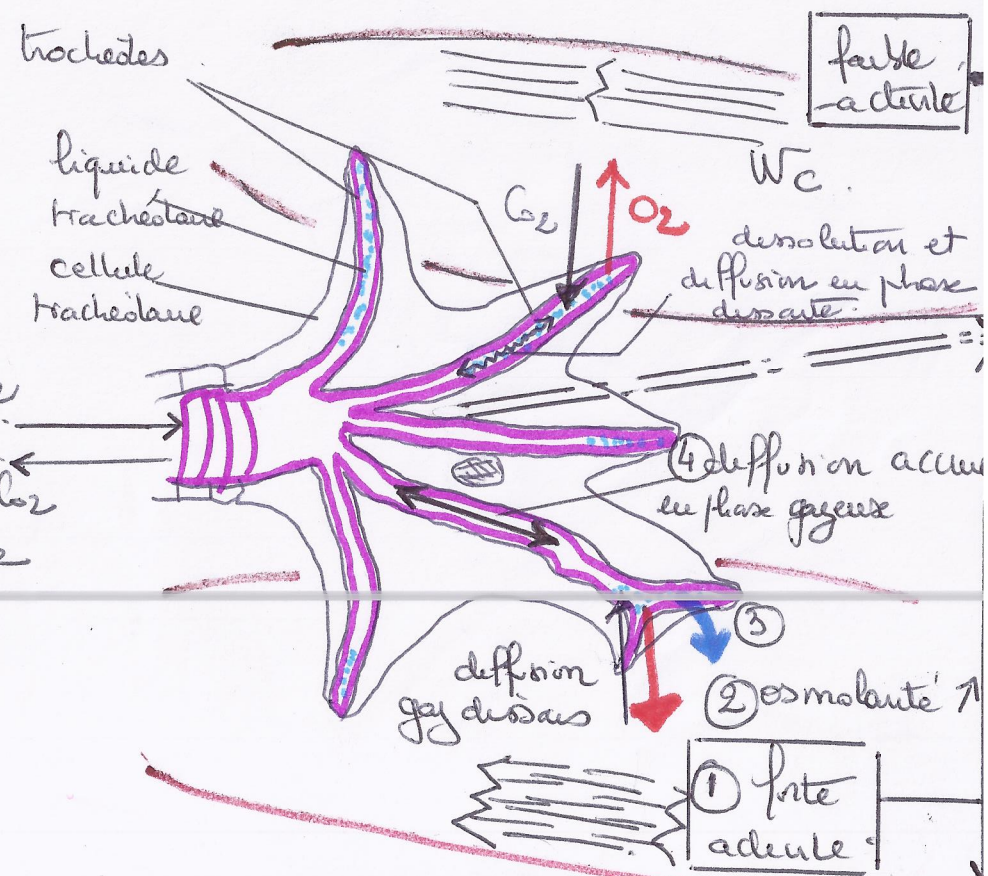 trochéoles
faible
activité
liquide
trachéolaire
cellule
trachéolaire
Wc.
CO2
O2
dissolution et
diffusion en phase
dissoute.
CO2
④ diffusion accrue
en phase gazeuse
③
diffusion
gaz dissous
② osmolarité ↑
① forte
activité.